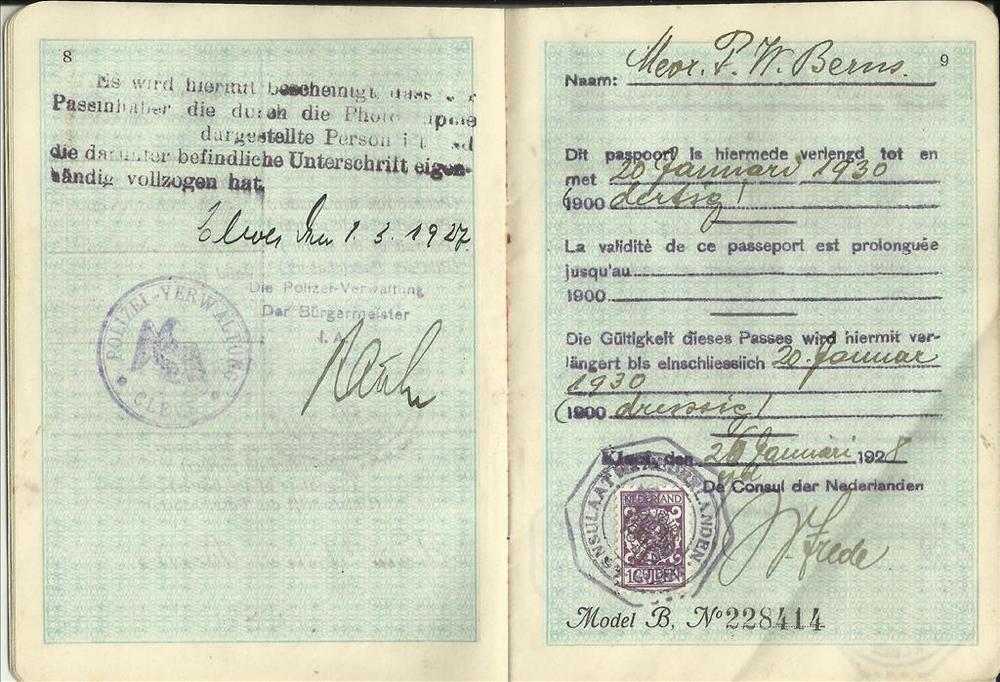 8
Es wird hiermit bescheinigt, dass
Passinhaber die durch die Photo
dargestellte Person ist
die darunter befindliche Unterschrift eigen-
händig vollzogen hat.
Cleve, den 1. 3. 1927
Die Polizei-Verwaltung
Der Bürgermeister
I. A.
POLIZEI-VERWALTUNG
CLEVE
9
Naam: Mevr. F. W. Berns.
Dit paspoort is hiermede verlengd tot en
met 20 Januari 1930
(1900 dertig)
La validité de ce passeport est prolonguée
jusqu'au
1900
Die Gültigkeit dieses Passes wird hiermit ver-
längert bis einschliesslich 20. Januar
1930
(1900 dreissig)
Kleef, den 20 Januari 1928
De Consul der Nederlanden
CONSULAAT DER NEDERLANDEN
NEDERLAND
1 GULDEN
Model B, No 228414